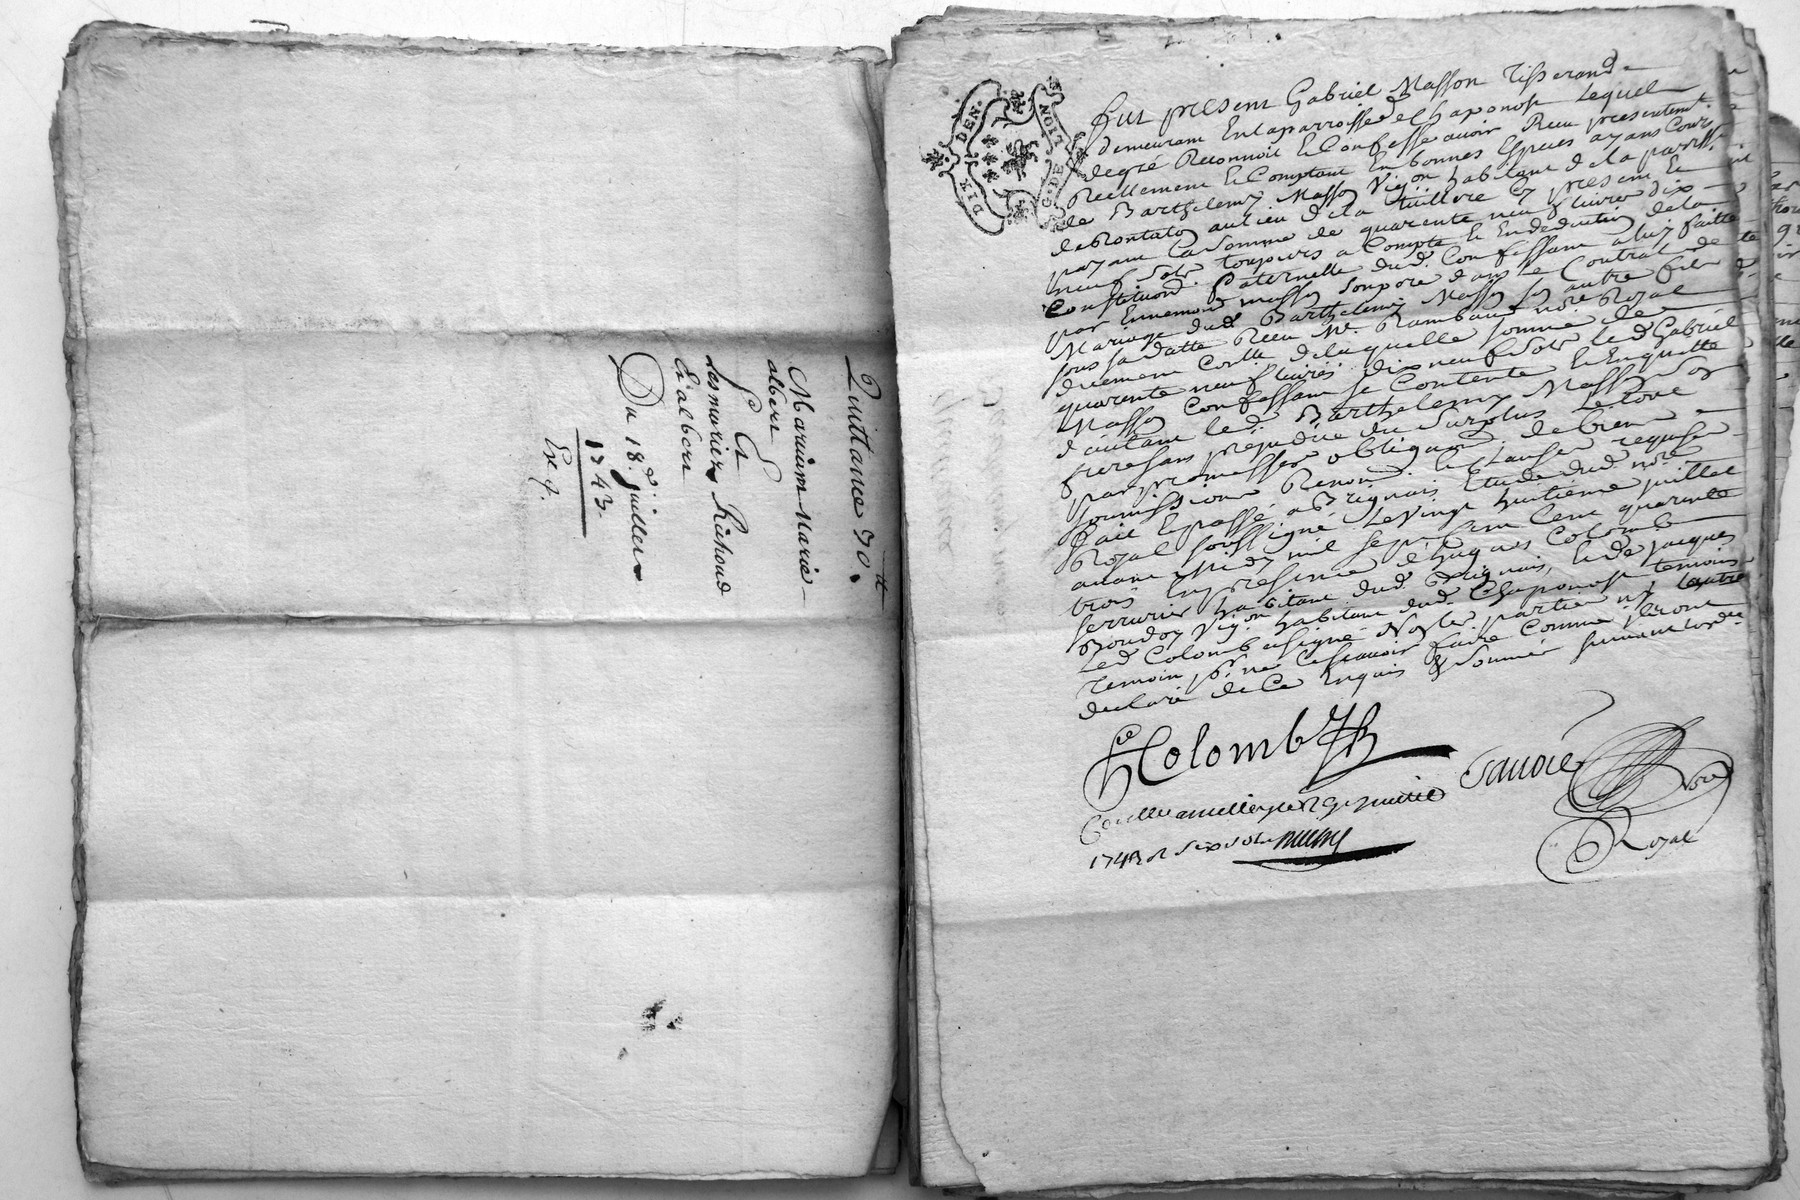 Quittance 70.tt
Marium Marie
albert
Les mariés Richoud
Et albert
Du 18.e juillet
1743.
Ex.
G. DE NOIT
DIX DEN.
fut present Gabriel Masson Tisserand
demeurant En la parroisse de Chaponost Lequel
de gré Reconnoit Et Confesse avoir Reçu presentement
Reellement Et Comptant En bonnes Especes ayans Cours
de Barthelemy Masson Vigon habitant de la parroisse
au lieu de la present Et
payant La somme de quarente neuf livres dix
neuf sols toujours a Compte Et En deduction de la
Constituõn Paternelle dud. Confessant a luy faitte
par Ennemond masson son pere dans Le Contrat de
Mariage dud. Barthelemy Masson son autre fils
sous sa datte Reçu Me. Rambaud nore. Royal
de laquelle somme de
quarente neuf livres dix neuf sols led. Gabriel
Masson Confessant se Contente Et En quitte
d'autant led. Barthelemy Masson son
frere sans prejudice du surplus Le tout
par promesses obligaõn de biens
soumissions Renonõn Et Clauses requises
fait Et passé a Brignais Etude dud. nore.
Royal soussigné Le vingt huitieme juillet
avant midy mil sept Cent quarente
trois En presence d'hugues Colomb
serrurier habitant dud. Brignais, Et de jacques
Boudoy Vigon habitant dud. Chaponost temoins
Led. Colomb a signé Non les parties ny L'autre
Temoin pr. ne Le sçavoir faire Comme ils ont
declaré de Ce Enquis & sommés suivant L'ordce.
Colomb
Savoie Nore.
Royal
1743